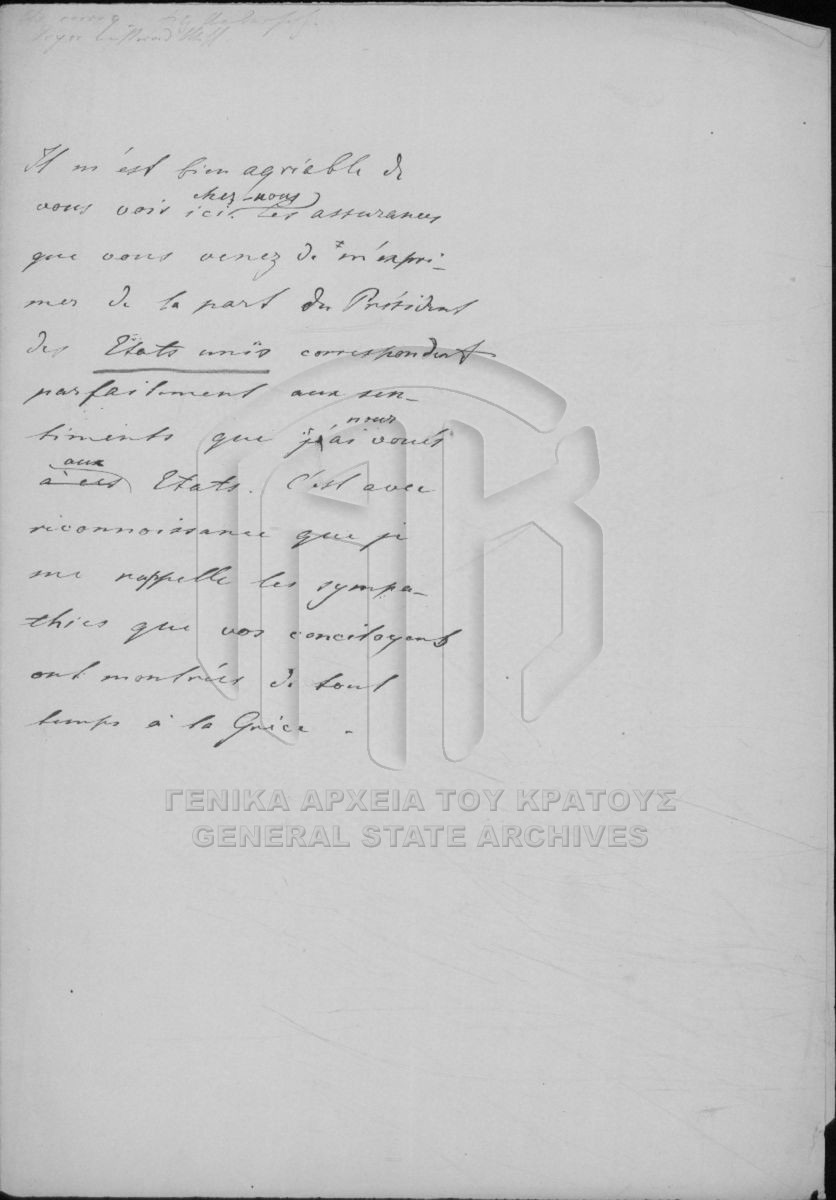 Il m'est bien agréable de
chez-nous
vous voir ici. Les assurances
que vous venez de m'expri-
mer de la part du Président
des Etats unis correspondent
parfaitement aux sen-
nous
timents que j'ai voués
aux
à ces Etats. C'est avec
reconnoissance que je
me rappelle les sympa-
thies que vos concitoyens
ont montrées de tout
temps à la Grèce.
ΓΕΝΙΚΑ ΑΡΧΕΙΑ ΤΟΥ ΚΡΑΤΟΥΣ
GENERAL STATE ARCHIVES